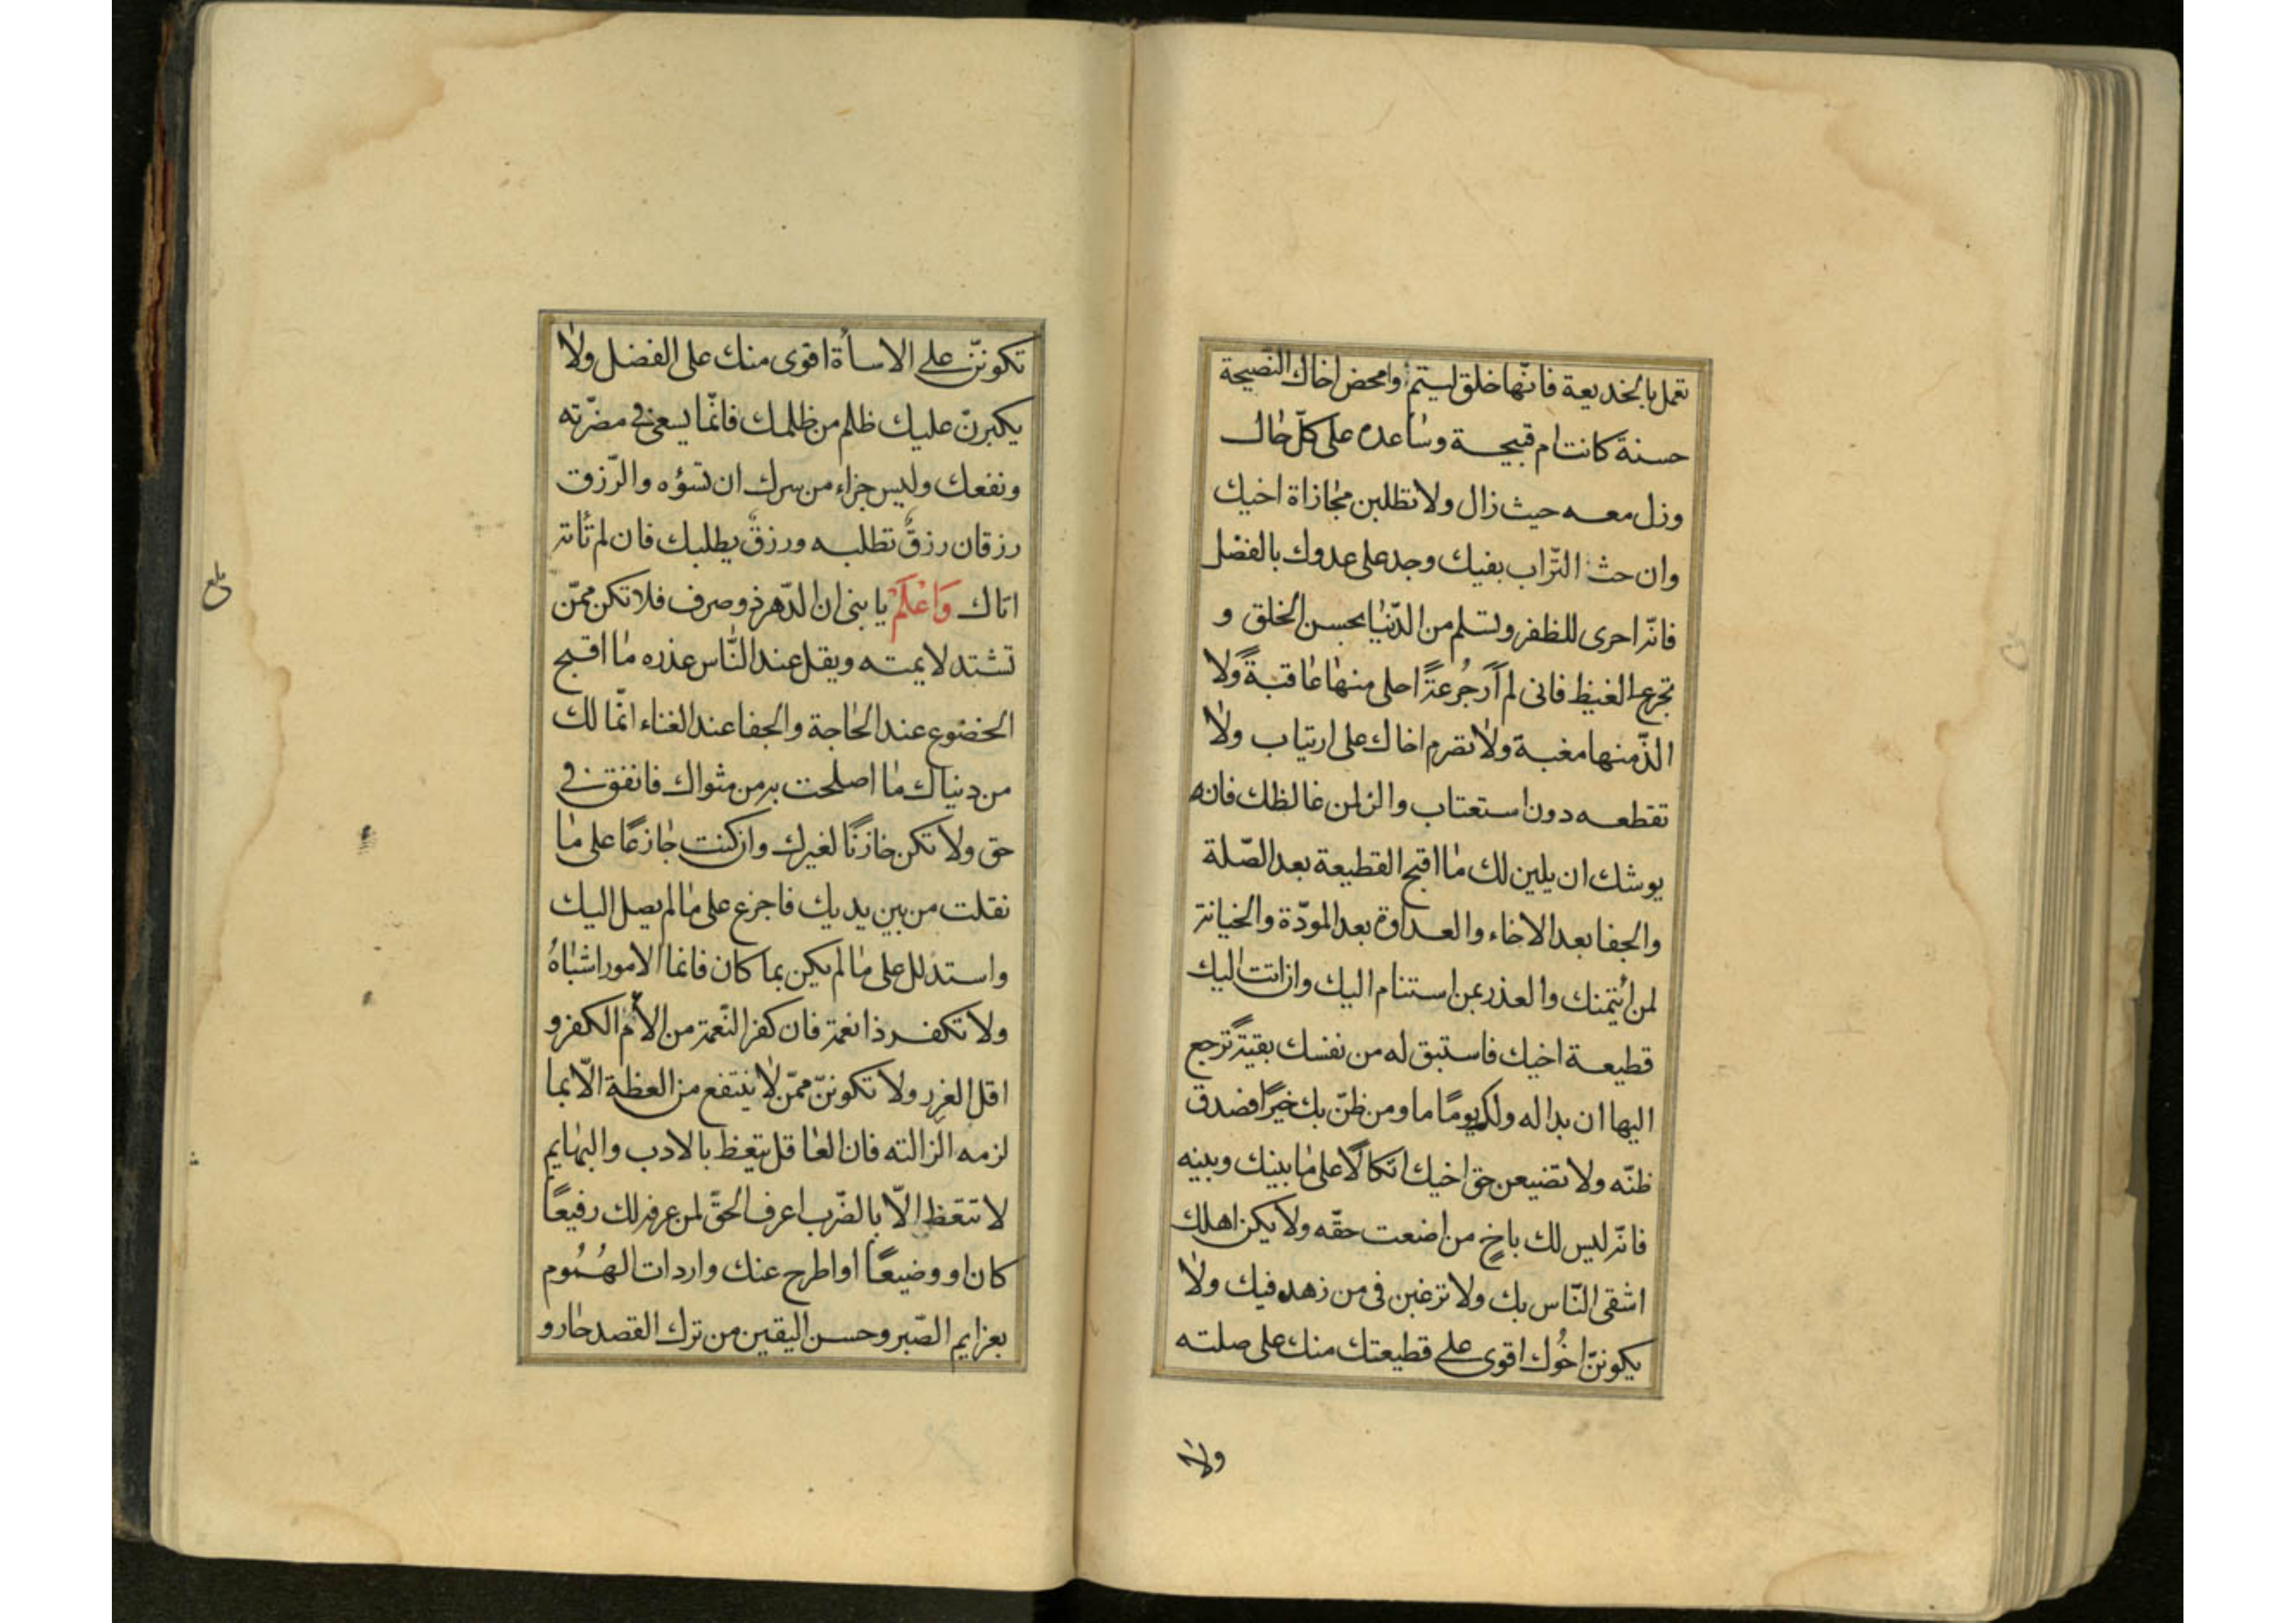 تعمل بالخديعة فانّها خلق ليتم وامحض اخاك النصيحة
حسنة كانت ام قبيحة وساعده على كلّ حال
وزل معه حيث زال ولا تطلبن مجازاة اخيك
وان حث التّراب بفيك وجد على عدوك بالفضل
فانّه احرى للظفر وتسلم من الدّنيا بحسن الخلق و
تجرع الغيظ فانى لم أر جُرعةً احلى منها عاقبةً ولا
الذّ منها مغبة ولا تصرم اخاك على ارتياب ولا
تقطعه دون استعتاب والن لمن غالظك فانه
يوشك ان يلين لك ما اقبح القطيعة بعد الصّلة
والجفا بعد الاخاء والعداوة بعد المودّة والخيانة
لمن ائتمنك والعذر بمن استنام اليك وان اتت اليك
قطيعة اخيك فاستبق له من نفسك بقيّةً ترجع
اليها ان بدا له ولك يومًا ما ومن ظنّ بك خيرًا فصدق
ظنّه ولا تضيعن حق اخيك اتكالًا على ما بينك وبينه
فانّه ليس لك باخٍ من اضعت حقّه ولا يكن اهلك
اشقى النّاس بك ولا ترغبن فى من زهد فيك ولا
يكوننّ اخُوك اقوى على قطيعتك منك على صلته
ولا
تكوننّ على الاسأة اقوى منك على الفضل ولا
يكبرنّ عليك ظلم من ظلمك فانّما يسعى فى مضرّته
ونفعك وليس جزاء من سرك ان تسؤه والرّزق
رزقان رزقٌ تطلبه ورزقٌ يطلبك فان لم تأته
اتاك وَاعْلَمْ يا بنى ان الدّهر ذو صرف فلا تكن ممّن
تشتد لايمته ويقل عند النّاس عذره ما اقبح
الخضوع عند الحاجة والجفا عند الغناء انّما لك
من دنياك ما اصلحت به من مثواك فانفق فى
حق ولا تكن خازنًا لغيرك وان كنت جازعًا على ما
نقلت من بين يديك فاجزع على ما لم يصل اليك
واستدلل على ما لم يكن بما كان فانما الامور اشباهٌ
ولا تكفر ذا نعمة فان كفر النّعمة من الأم الكفر و
اقل الغرر ولا تكوننّ ممّن لا ينتفع من العظة الّا بما
لزمه الزالته فان العاقل يتعظ بالادب والبهايم
لا تتعظ الّا بالضّرب اعرف الحقّ لمن عرفه لك رفيعًا
كان او وضيعًا او اطرح عنك واردات الهُمُوم
بعزايم الصّبر وحسن اليقين من ترك القصد حار و
بلغ